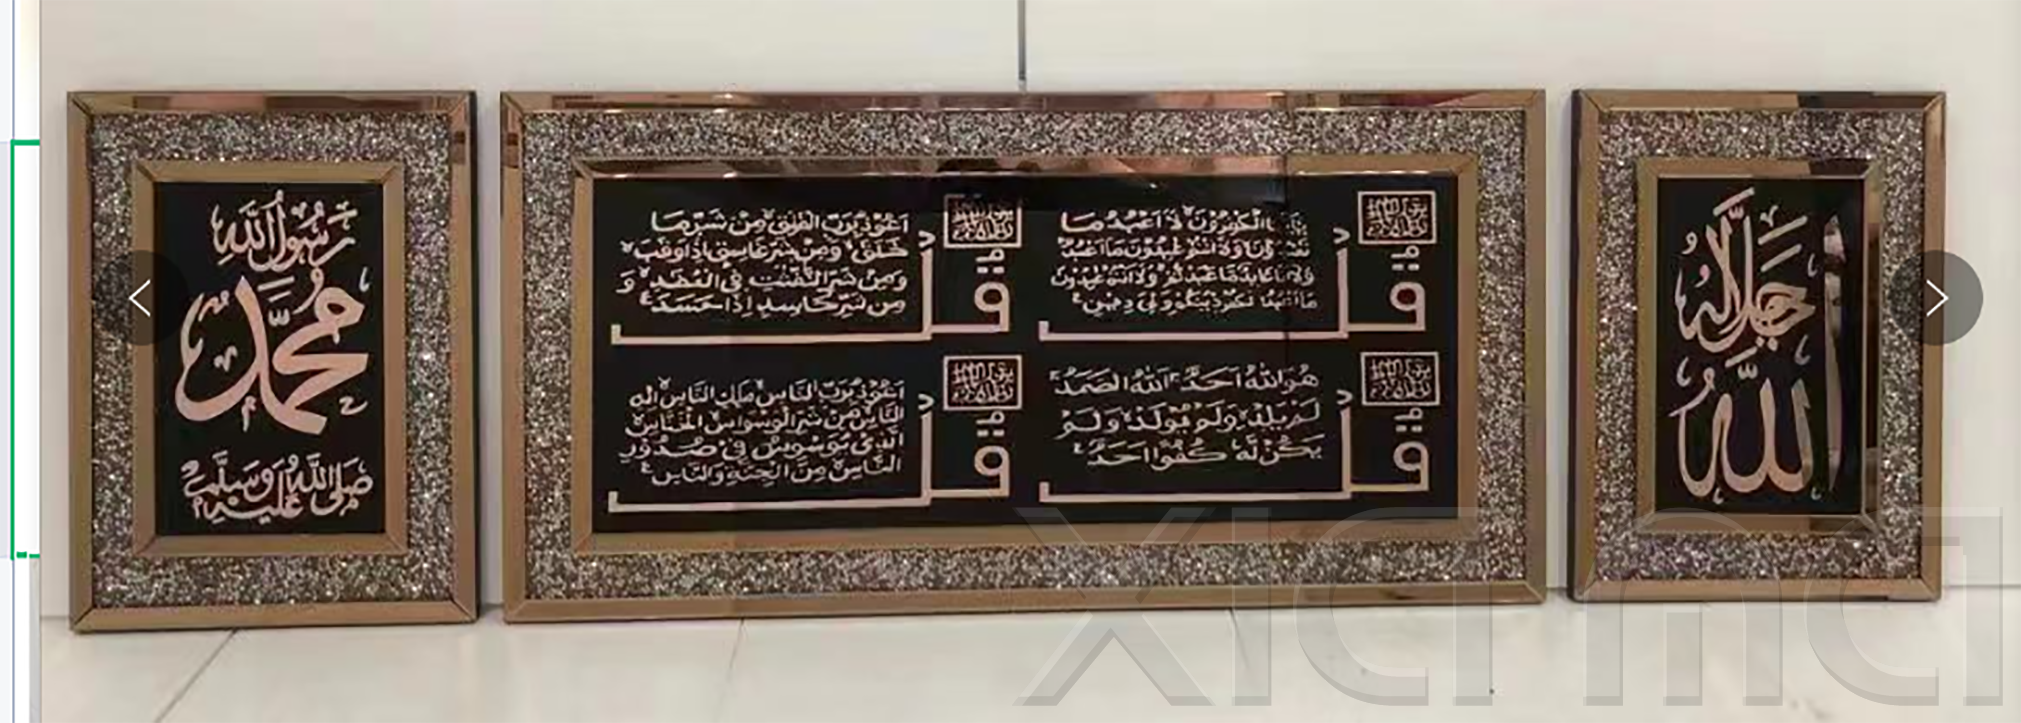 رَسُولُ اللَّه
مُحَمَّد
صَلَّى اللَّهُ عَلَيْهِ وَسَلَّمَ
قُلْ
يٰٓاَيُّهَا الْكٰفِرُوْنَ لَا اَعْبُدُ مَا
تَعْبُدُوْنَ وَلَا اَنْتُمْ عٰبِدُوْنَ مَا اَعْبُدُ
وَلَا اَنَا عَابِدٌ مَّا عَبَدْتُّمْ وَلَا اَنْتُمْ عٰبِدُوْنَ
مَا اَعْبُدُ لَكُمْ دِيْنُكُمْ وَلِيَ دِيْنِ
قُلْ
اَعُوْذُ بِرَبِّ الْفَلَقِ مِنْ شَرِّ مَا
خَلَقَ وَمِنْ شَرِّ غَاسِقٍ اِذَا وَقَبَ
وَمِنْ شَرِّ النَّفّٰثٰتِ فِي الْعُقَدِ وَ
مِنْ شَرِّ حَاسِدٍ اِذَا حَسَدَ
قُلْ
هُوَ اللّٰهُ اَحَدٌ اَللّٰهُ الصَّمَدُ
لَمْ يَلِدْ وَلَمْ يُوْلَدْ وَلَمْ
يَكُنْ لَّهٗ كُفُوًا اَحَدٌ
قُلْ
اَعُوْذُ بِرَبِّ النَّاسِ مَلِكِ النَّاسِ اِلٰهِ
النَّاسِ مِنْ شَرِّ الْوَسْوَاسِ الْخَنَّاسِ
الَّذِيْ يُوَسْوِسُ فِيْ صُدُوْرِ
النَّاسِ مِنَ الْجِنَّةِ وَالنَّاسِ
اللَّه
جَلَّ جَلَالُهُ
xiama